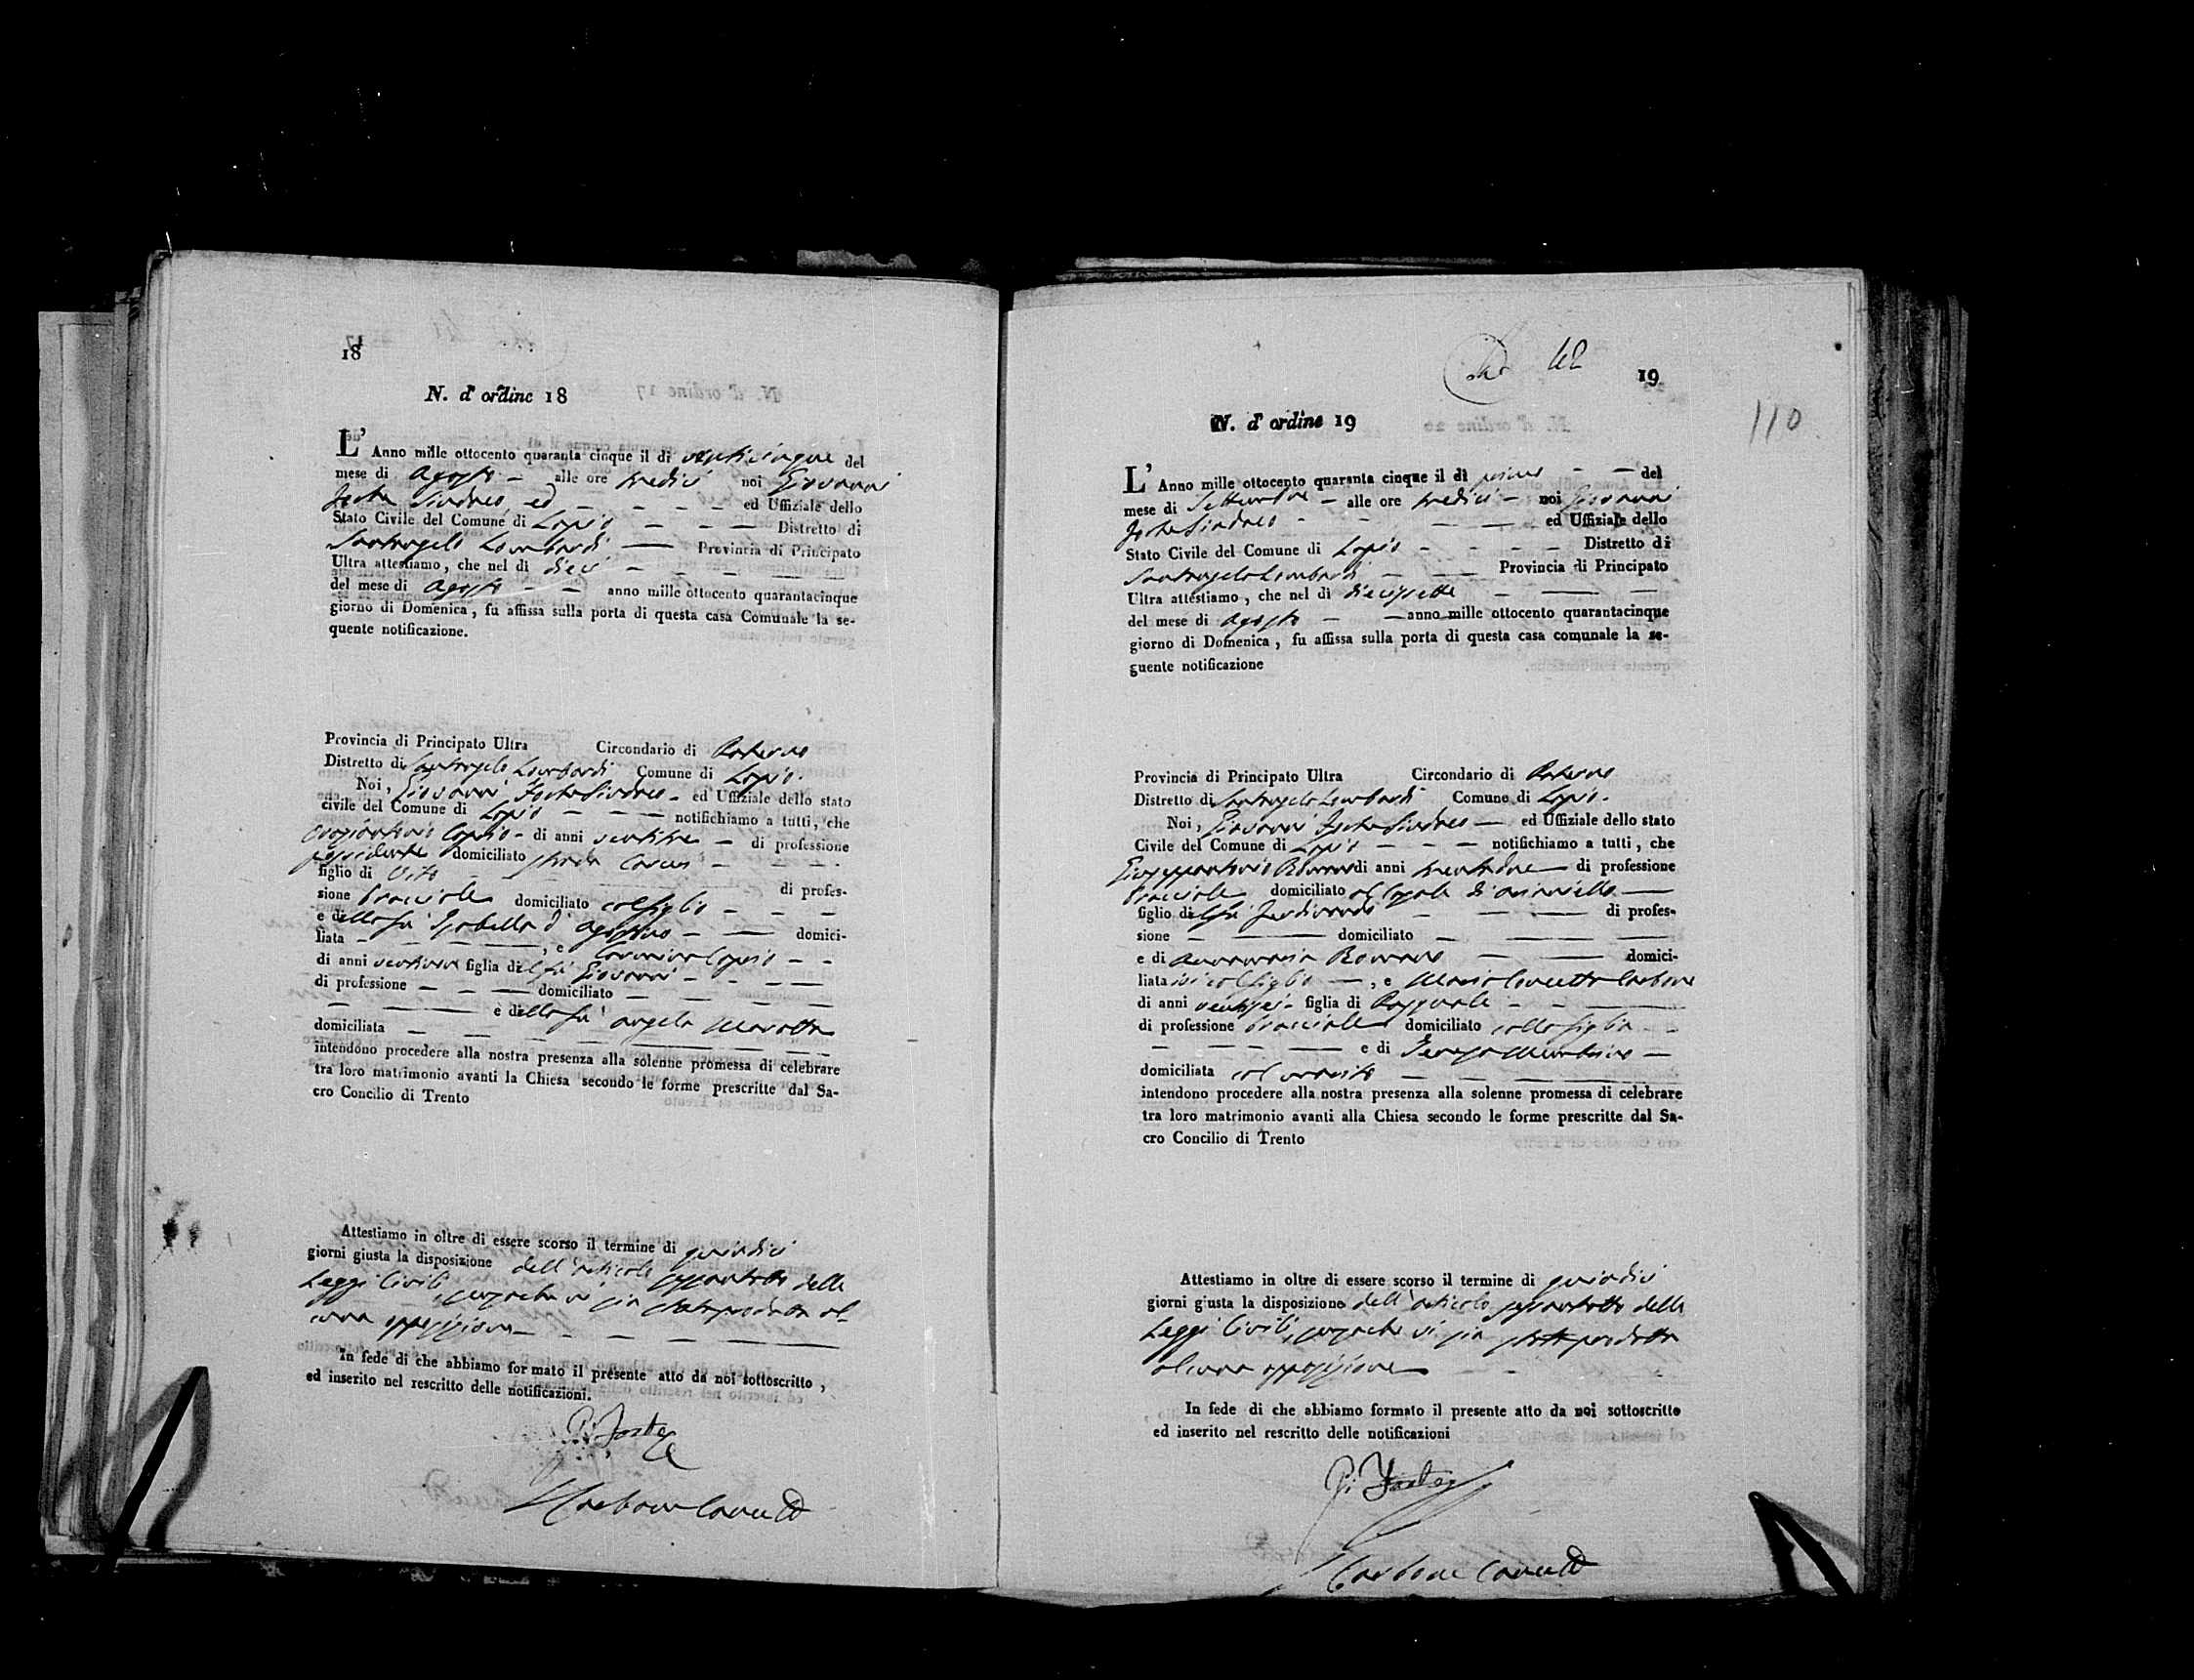 18
N. d'ordine 18
L' Anno mille ottocento quaranta cinque il dì venticinque del
mese di Agosto — alle ore tredici noi Giovanni
Jorta Sindaco, ed — — — — ed Uffiziale dello
Stato Civile del Comune di Lapio — — — Distretto di
Santangelo Lombardi — Provincia di Principato
Ultra attestiamo, che nel dì dieci — — — —
del mese di Agosto — — anno mille ottocento quarantacinque
giorno di Domenica, fu affissa sulla porta di questa casa Comunale la se-
quente notificazione.
Provincia di Principato Ultra Circondario di Paterno
Distretto di Santangelo Lombardi Comune di Lapio.
Noi, Giovanni Jorta Sindaco — ed Uffiziale dello stato
civile del Comune di Lapio — — — notifichiamo a tutti, che
di anni ventitre — di professione
possidente domiciliato strada
figlio di Vito — di profes-
sione bracciale domiciliato col figlio — — —
e della fu Isabella d'Agostino — — domici-
liata — — — —, e Carmina — —
di anni figlia del fu Giovanni — — — —
di professione — — — domiciliato — — — —
— — e della fu Angela Marotta
domiciliata — — — — — —
intendono procedere alla nostra presenza alla solenne promessa di celebrare
tra loro matrimonio avanti la Chiesa secondo le forme prescritte dal Sa-
cro Concilio di Trento
Attestiamo in oltre di essere scorso il termine di quindici
giorni giusta la disposizione dell'articolo sessantotto delle
Leggi Civili, senzache vi sia stata prodotta al-
cuna opposizione — — — —
In fede di che abbiamo formato il presente atto da noi sottoscritto,
ed inserito nel rescritto delle notificazioni.
G: Jorta
Carbone
42
19
110
N. d'ordine 19
L' Anno mille ottocento quaranta cinque il dì primo — — del
mese di Settembre — alle ore tredici — noi Giovanni
Jorta Sindaco — — — — ed Uffiziale dello
Stato Civile del Comune di Lapio — — — — Distretto di
Santangelo Lombardi — — Provincia di Principato
Ultra attestiamo, che nel dì diecisette — — —
del mese di Agosto — — anno mille ottocento quarantacinque
giorno di Domenica, fu affissa sulla porta di questa casa comunale la se-
guente notificazione
Provincia di Principato Ultra Circondario di Paterno
Distretto di Santangelo Lombardi Comune di Lapio.
Noi, Giovanni Jorta Sindaco — ed Uffiziale dello stato
Civile del Comune di Lapio — — — notifichiamo a tutti, che
Giuseppantonio Romano di anni trentadue — di professione
bracciale domiciliato al Casale di Arianiello —
figlio del fu Ferdinando — — — di profes-
sione — — domiciliato — — —
e di Annamaria Romano — — domici-
liata ivi col figlio —, e Maria Concetta Carbone
di anni ventisei — figlia di Pasquale — — —
di professione bracciale domiciliato colla figlia — —
— — — — e di Teresa —
domiciliata col marito — — — —
intendono procedere alla nostra presenza alla solenne promessa di celebrare
tra loro matrimonio avanti alla Chiesa secondo le forme prescritte dal Sa-
cro Concilio di Trento
Attestiamo in oltre di essere scorso il termine di quindici
giorni giusta la disposizione dell'articolo sessantotto delle
Leggi Civili, senzache vi sia stata prodotta
alcuna opposizione — —
In fede di che abbiamo formato il presente atto da noi sottoscritto
ed inserito nel rescritto delle notificazioni
G: Jorta
Carbone